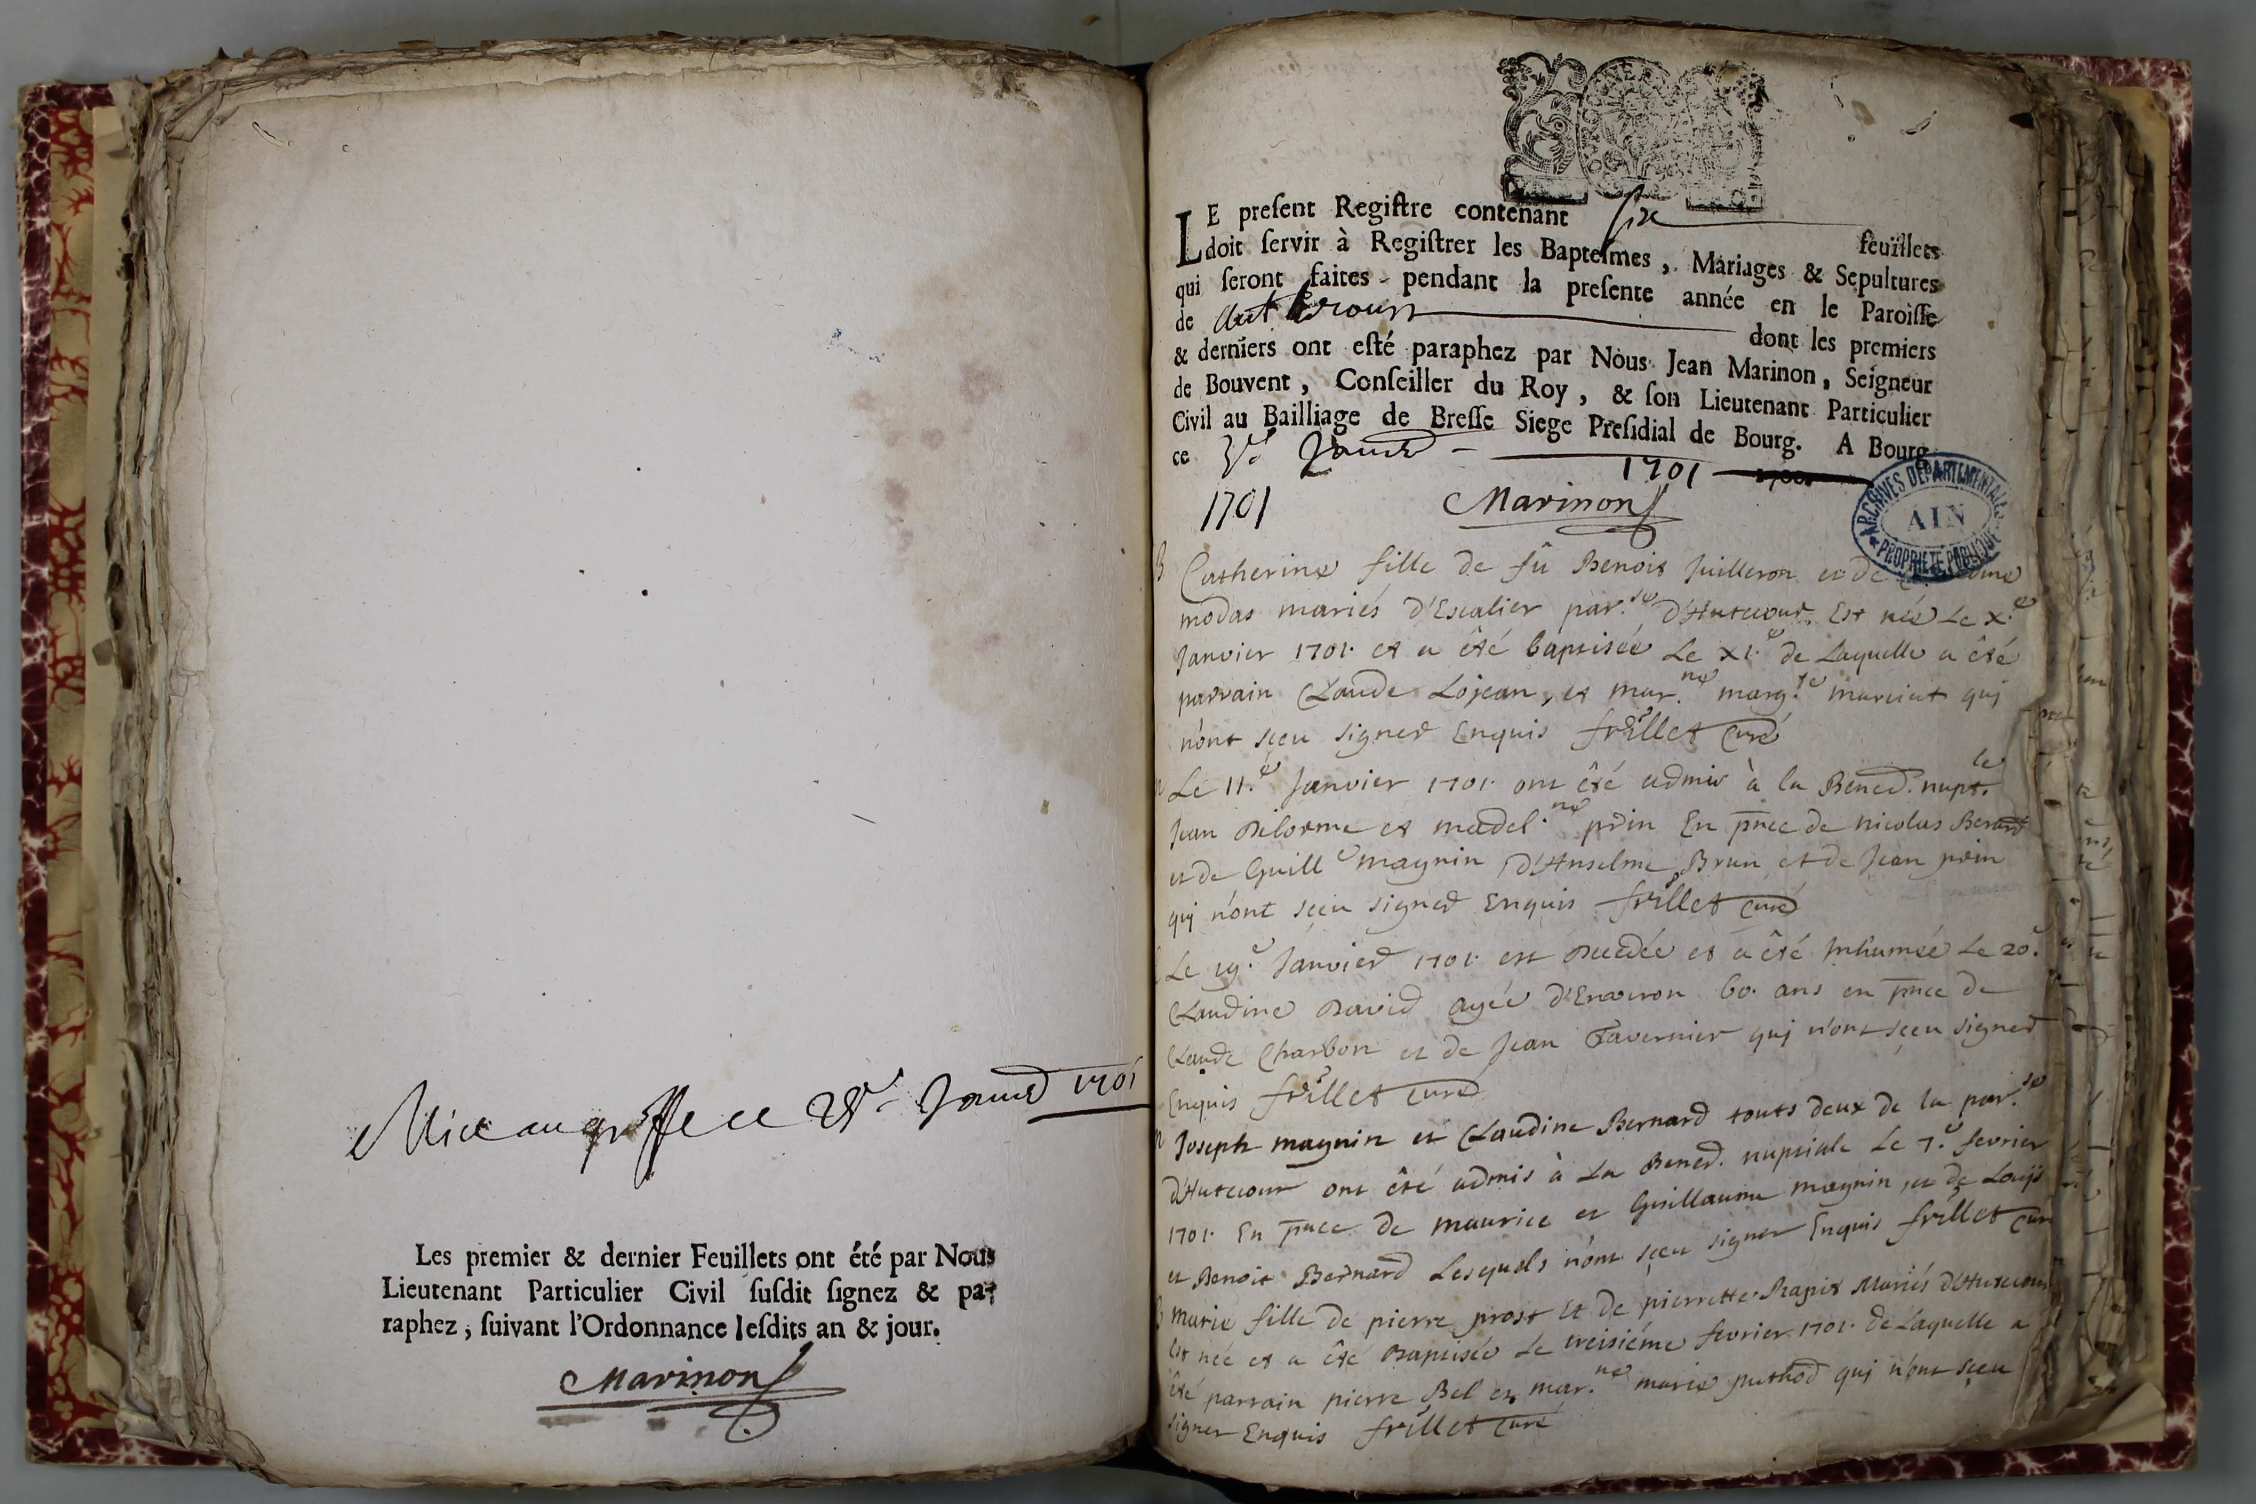 Mis au greffe ce Janvier 1701
Les premier & dernier Feuillets ont été par Nous
Lieutenant Particulier Civil susdit signez & pa-
raphez, suivant l'Ordonnance lesdits an & jour.
Marinon
LE present Registre contenant six feuillets
doit servir à Registrer les Baptesmes, Mariages & Sepultures
qui seront faites pendant la presente année en le Paroisse
de dont les premiers
& derniers ont esté paraphez par Nous Jean Marinon, Seigneur
de Bouvent, Conseiller du Roy, & son Lieutenant Particulier
Civil au Bailliage de Bresse Siege Presidial de Bourg. A Bourg
ce 1701
1701 Marinon
ARCHIVES DEPARTEMENTALES
AIN
PROPRIETE PUBLIQUE
B Catherine fille de fû Benois Juilleron et de
modas mariés d'Escalier par.se d'Hutecour. Est née Le X.e
Janvier 1701. et a êté baptisée Le XI.e de Laquelle a êté
parrain Claude Lojean, et mar.ne marg.te marciat qui
n'ont sçeu signer Enquis frillet Curé
Le 11.e Janvier 1701. ont êté admis à la Bened. nupt.le
Jean Delorme et madel.ne prin En pnce de nicolas Berard
et de Guill.e maynin, d'Anselme Brun et de Jean prin
qui n'ont sçeu signer Enquis frillet curé
Le 19.e Janvier 1701. est Decedée et a êté Inhumée Le 20.e
Claudine David agée d'Environ 60. ans en pnce de
Claude Charbon et de Jean Tavernier qui n'ont sçeu signer
Enquis frillet curé
Joseph maynin et Claudine Bernard touts deux de la par.se
d'Hutecour ont êté admis à La Bened. nuptiale Le 7.e fevrier
1701. En pnce de maurice et Guillaume maynin, et de Louijs
et Benoit Bernard Lesquels n'ont sçeu signer Enquis frillet Cur
B marie fille de pierre prost Et de pierrette Rapit Mariés d'Hutecour
Est née et a êté Baptisée Le treisiéme fevrier 1701. de Laquelle a
êté parrain pierre Bel et mar.ne marie puthod qui n'ont sçeu
signer Enquis frillet Curé